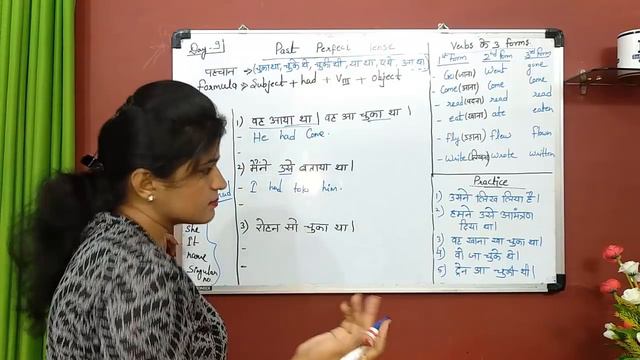 Day-9
Past Perfect Tense
पहचान → (चुका था, चुके थे, चुकी थी, या था, ये थे, आ था)
Formula → Subject + had + VIII + object
1) वह आया था। वह आ चुका था।
- He had Come.
-
2) मैंने उसे बताया था।
- I had told him.
-
3) रोहन सो चुका था।
-
-
She
It
name
Singular
no
Verbs के 3 forms.
1st Form 2nd Form 3rd Form
- Go (जाना) Went gone
- Come (आना) Came come
- read (पढ़ना) read read
- eat (खाना) ate eaten
- Fly (उड़ना) flew flown
- Write (लिखना) wrote written
Practice
1) उसने लिख लिया है।
2) हमने उसे आमंत्रण
दिया था।
3) वह खाना खा चुका था।
4) वो जा चुके थे।
5) ट्रेन आ चुकी थी।